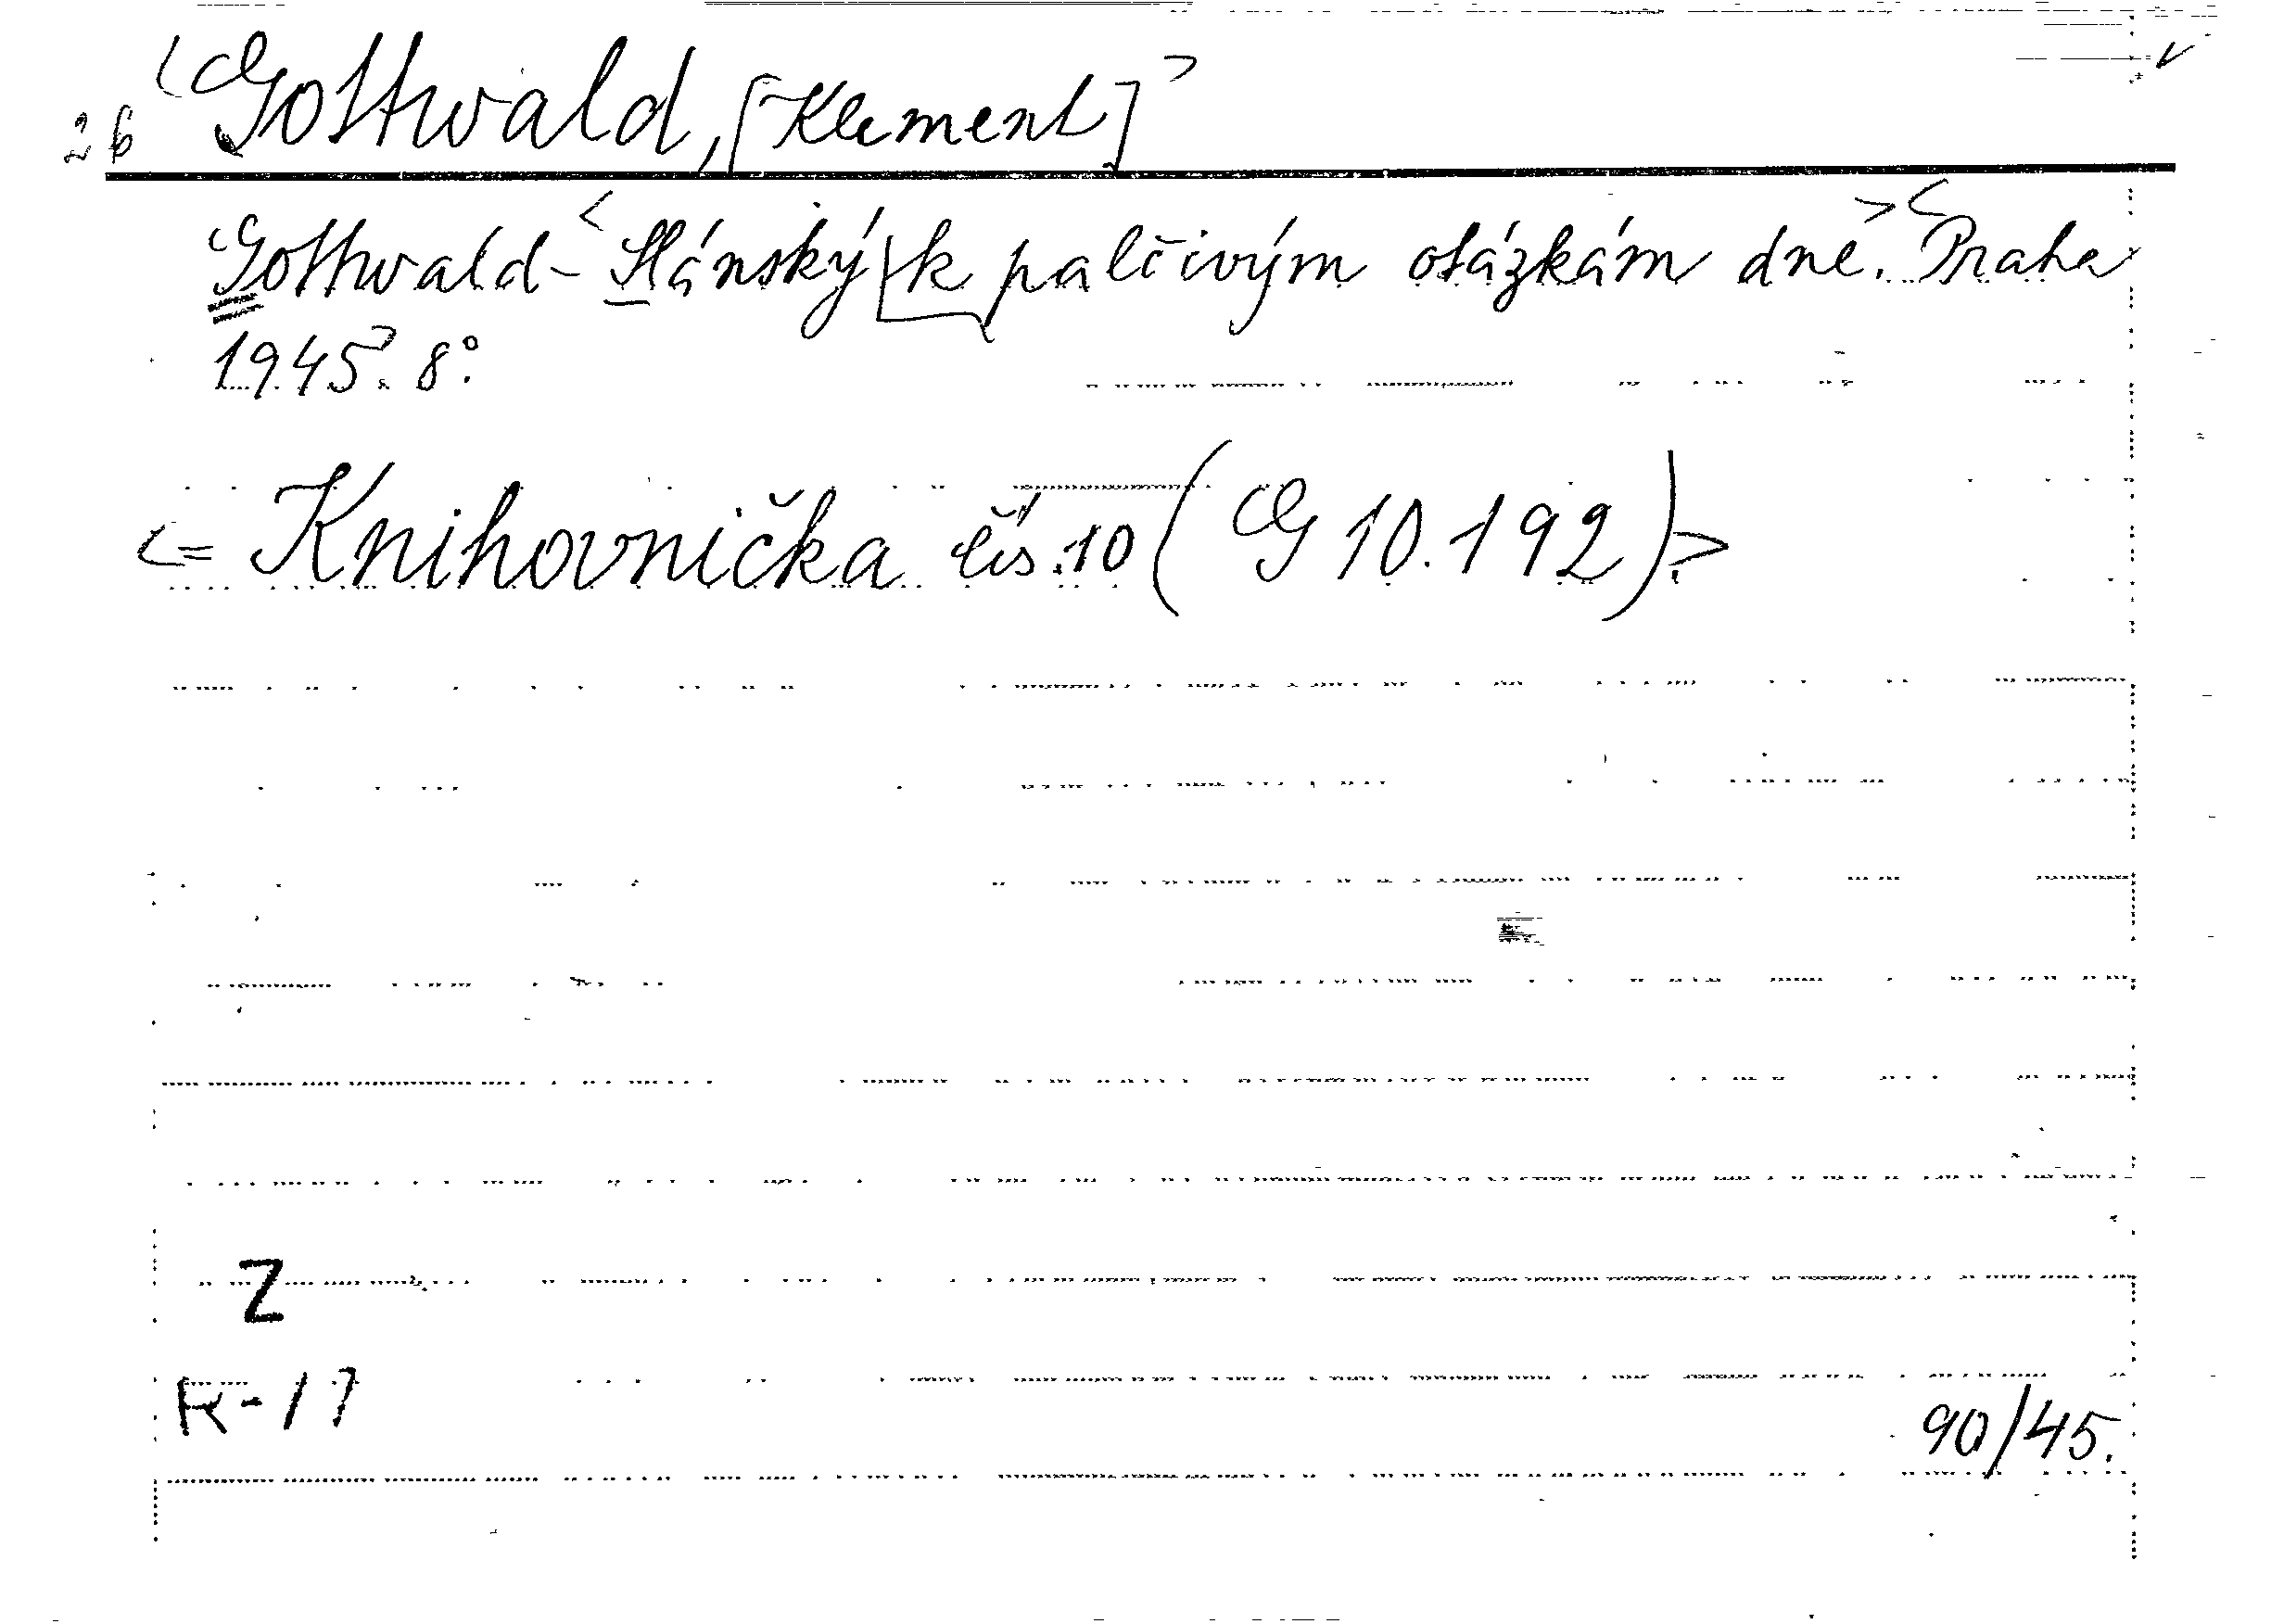 26 <Gottwald, [Klement]> v
Gottwald-<Slánský k palčivým otázkám dne.> <Praha
1945>. 8°.
<= Knihovnička čís. 10 (G 10.192).>
Z
K-17
90/45.